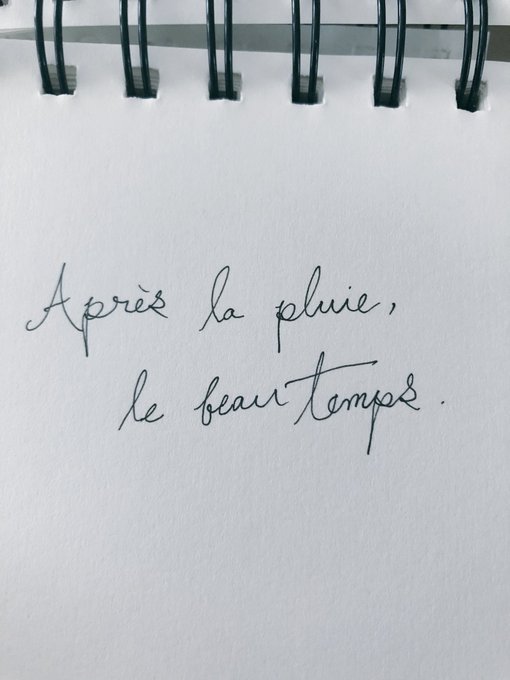 Après la pluie,
le beau temps.